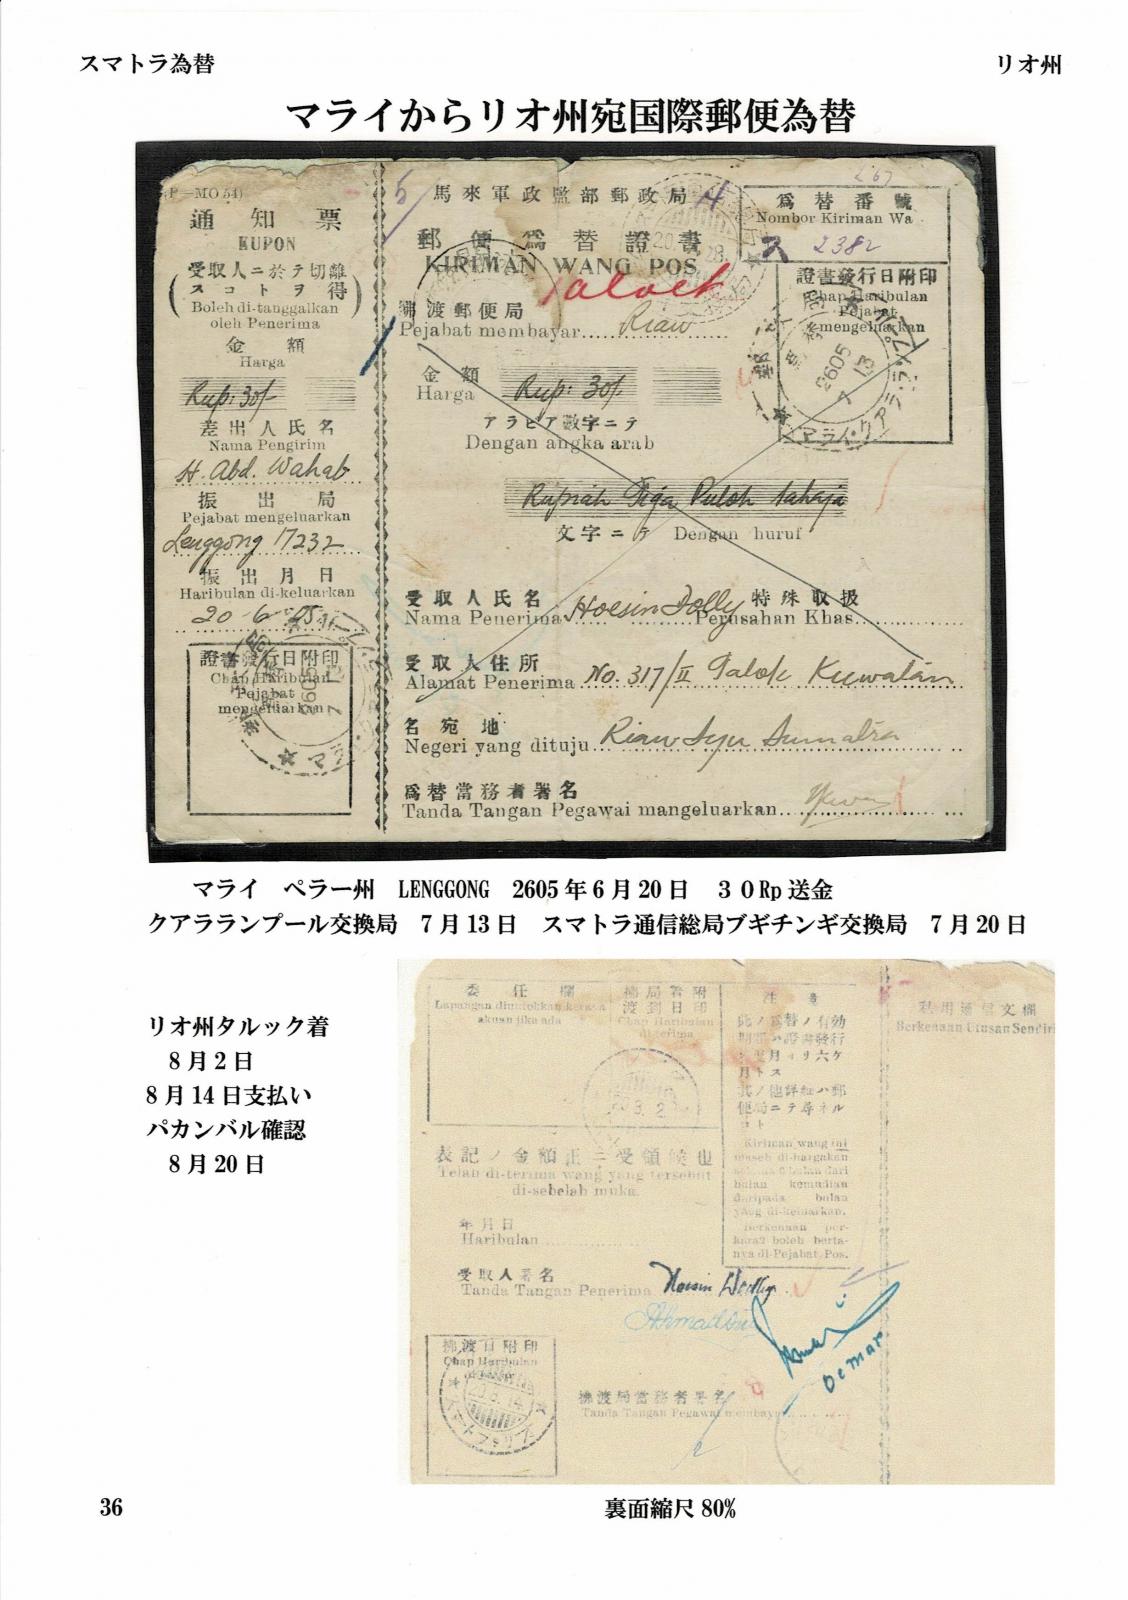 スマトラ為替
リオ州
マライからリオ州宛国際郵便為替
(P—MO 54)
通知票
KUPON
受取人ニ於テ切離
スコトヲ得
Boleh di-tanggalkan
oleh Penerima
金額
Harga
Rup: 30/-
差出人氏名
Nama Pengirim
H. Abd. Wahab
振出局
Pejabat mengeluarkan
Lenggong 17232
振出月日
Haribulan di-keluarkan
20-6-05
證書發行日附印
Chap Haribulan
Pejabat
mengeluarkan
2605
7
馬來軍政監部郵政局
郵便爲替證書
KIRIMAN WANG POS
Taloek
拂渡郵便局
Pejabat membayar Riaw
金額
Harga Rup: 30/-
アラビア數字ニテ
Dengan angka arab
Rupiah Tiga Puloh sahaja
文字ニテ Dengan huruf
受取人氏名 特殊取扱
Nama Penerima Hoesin Dolly Perusahan Khas
受取人住所
Alamat Penerima No. 317/II Talok Kuwalan
名宛地
Negeri yang dituju Riaw Sumatra
爲替當務者署名
Tanda Tangan Pegawai mangeluarkan
267
爲替番號
Nombor Kiriman Wa
ス 2382
證書發行日附印
Chap Haribulan
Pejabat
mengeluarkan
2605
7 13
マライ・クアラ・ランプール
マライ ペラー州 LENGGONG 2605年6月20日 30Rp送金
クアラランプール交換局 7月13日 スマトラ通信総局ブギチンギ交換局 7月20日
リオ州タルック着
8月2日
8月14日支払い
パカンバル確認
8月20日
委任欄
Lapangan diuntokkan kerasa
akuan jika ada
拂局署附
渡到日印
Chap Haribulan
di-terima
8.2
表記ノ金額正ニ受領候也
Telah di-terima wang yang tersebut
di-sebelah muka.
年月日
Haribulan
受取人署名
Tanda Tangan Penerima Hoesin Dolly
Oemar
拂渡日附印
Chap Haribulan
20.8.14
拂渡局當務者署名
Tanda Tangan Pegawai membayar
注意
此ノ爲替ノ有効
期間ハ證書發行
ノ翌月ヨリ六ケ
月トス
其ノ他詳細ハ郵
便局ニテ尋ネル
コト
Kiriman wang ini
maseh di-hargakan
selama 6 bulan dari
bulan kemudian
daripada bulan
yang di-keluarkan.
Berkenaan per-
kara2 boleh berta-
nya di-Pejabat Pos.
私用通信文欄
Berkenaan Utusan Sendiri
36
裏面縮尺 80%